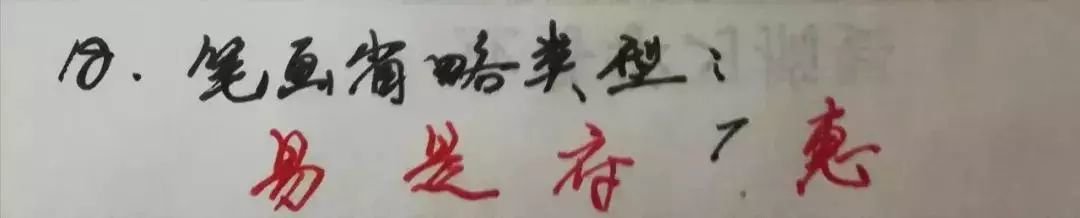 18. 笔画省略类型：
易 是 府 ？ 惠